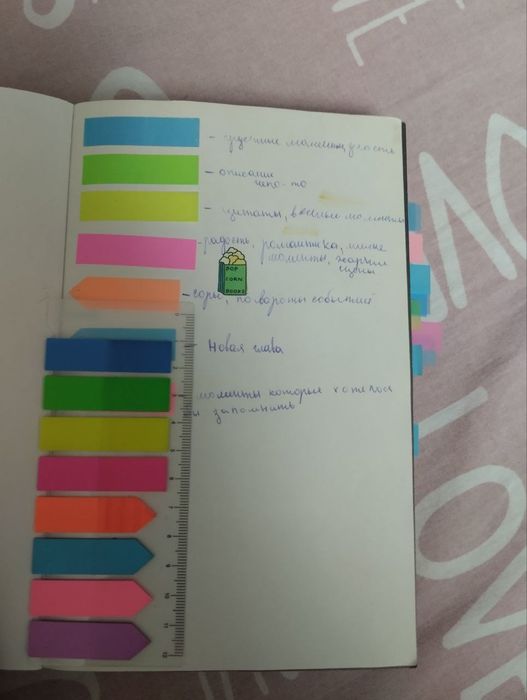 - грустные моменты,
- описание
чего-то
- цитаты, важные моменты
- радость, романтика, милые
моменты, жаркие
сцены
POP
CORN
BOOKS
- соры, повороты событий
- Новая глава
моменты которые хотелось
запомнить
LOVE